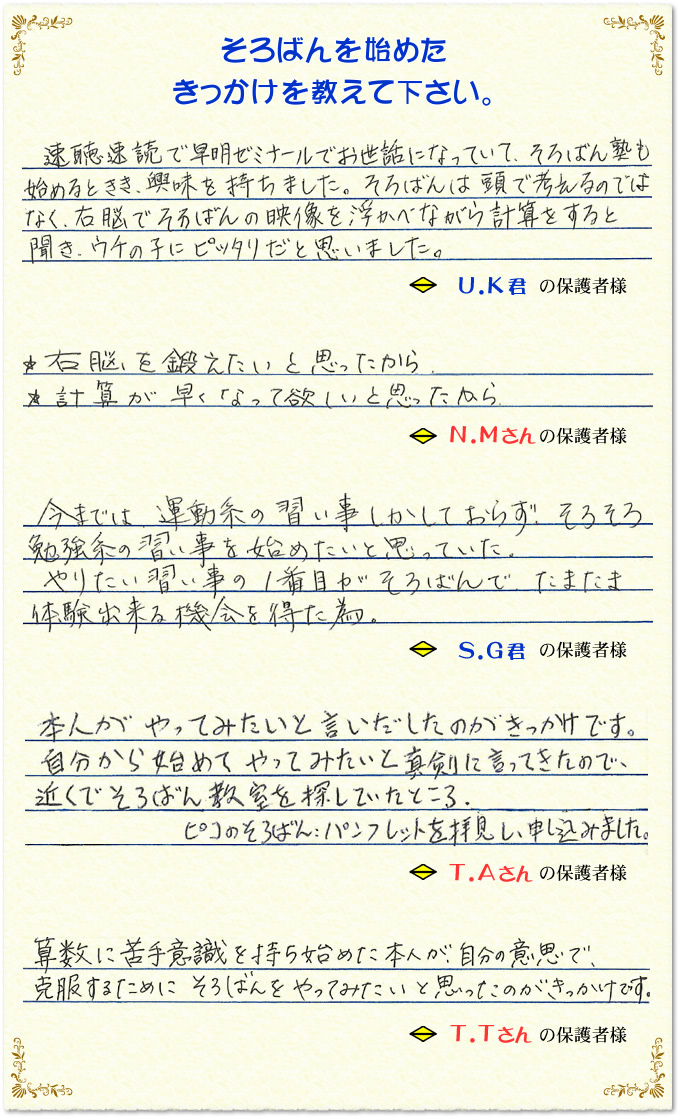 そろばんを始めた
きっかけを教えて下さい。
速聴速読で早明ゼミナールでお世話になっていて、そろばん塾も
始めるときき、興味を持ちました。そろばんは頭で考えるのでは
なく、右脳でそろばんの映像を浮かべながら計算をすると
聞き、ウチの子にピッタリだと思いました。
U.K君 の保護者様
★右脳を鍛えたいと思ったから.
★計算が早くなって欲しいと思ったから.
N.Mさんの保護者様
今までは、運動系の習い事しかしておらず、そろそろ
勉強系の習い事を始めたいと思っていた。
やりたい習い事の1番目がそろばんで、たまたま
体験出来る機会を得た為。
S.G君 の保護者様
本人がやってみたいと言いだしたのがきっかけです。
自分から始めてやってみたいと真剣に言ってきたので、
近くでそろばん教室を探していたところ、
ピコのそろばん:パンフレットを拝見し、申し込みました。
T.Aさんの保護者様
算数に苦手意識を持ち始めた本人が、自分の意思で、
克服するためにそろばんをやってみたいと思ったのがきっかけです。
T.Tさんの保護者様